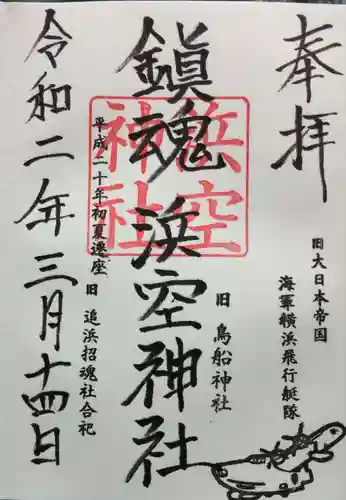 奉拝
旧大日本帝国
海軍横浜飛行艇隊
鎮魂浜空神社
浜空
神社
旧 鳥船神社
平成二十年初夏遷座
旧 追浜招魂社合祀
令和二年三月十四日